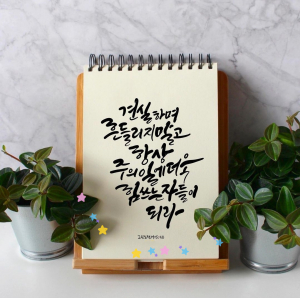 견실하며
흔들리지말고
항상
주의일에더욱
힘쓰는자들이
되라
고린도전서15:58